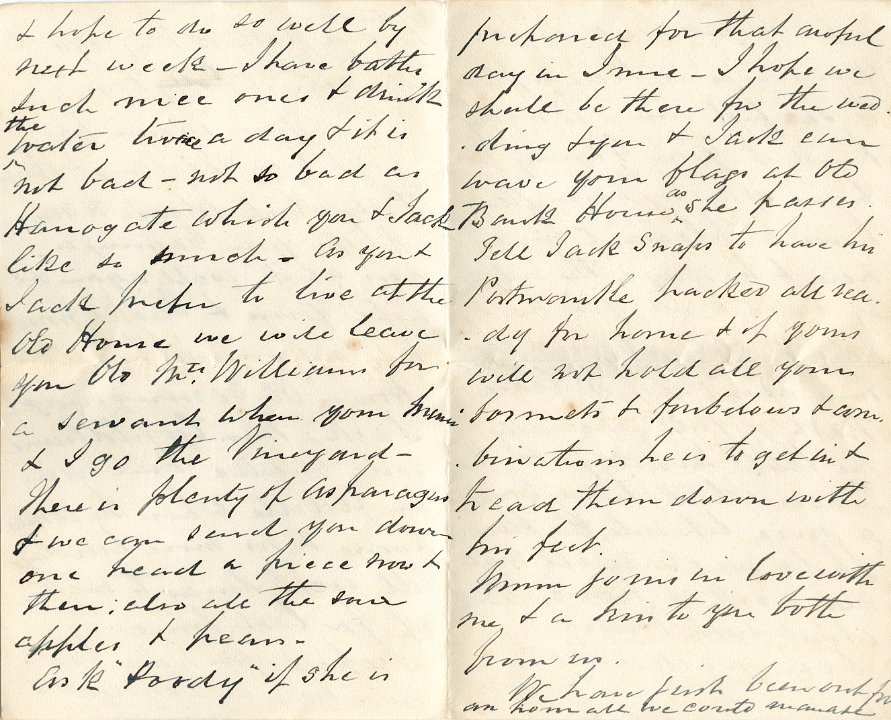 & hope to do so well by
next week - I have baths
such nice ones & drink
the
water twice a day & it is
not bad - not so bad as
Harrogate which you & Jack
like so much - As you &
Jack prefer to live at the
Old House we will leave
you Old Mrs. Williams for
a servant when your Mum
& I go the Vineyard -
There is plenty of Asparagus
& we can send you down
one head a piece now &
then; also all the sour
apples & pears -
Ask "Doody" if she is
prepared for that awful
day in June - I hope we
shall be there for the wed
-ding & you & Jack can
wave your flags at Old
Bank House as she passes.
Tell Jack Snaps to have his
Portmantle packed all rea-
-dy for home & if yours
will not hold all your
& furbelows & com-
-binations he is to get in &
tread them down with
his feet.
Mum joins in love with
me & a kiss to you both
from us.
We have just been out for
an hour all we could manage